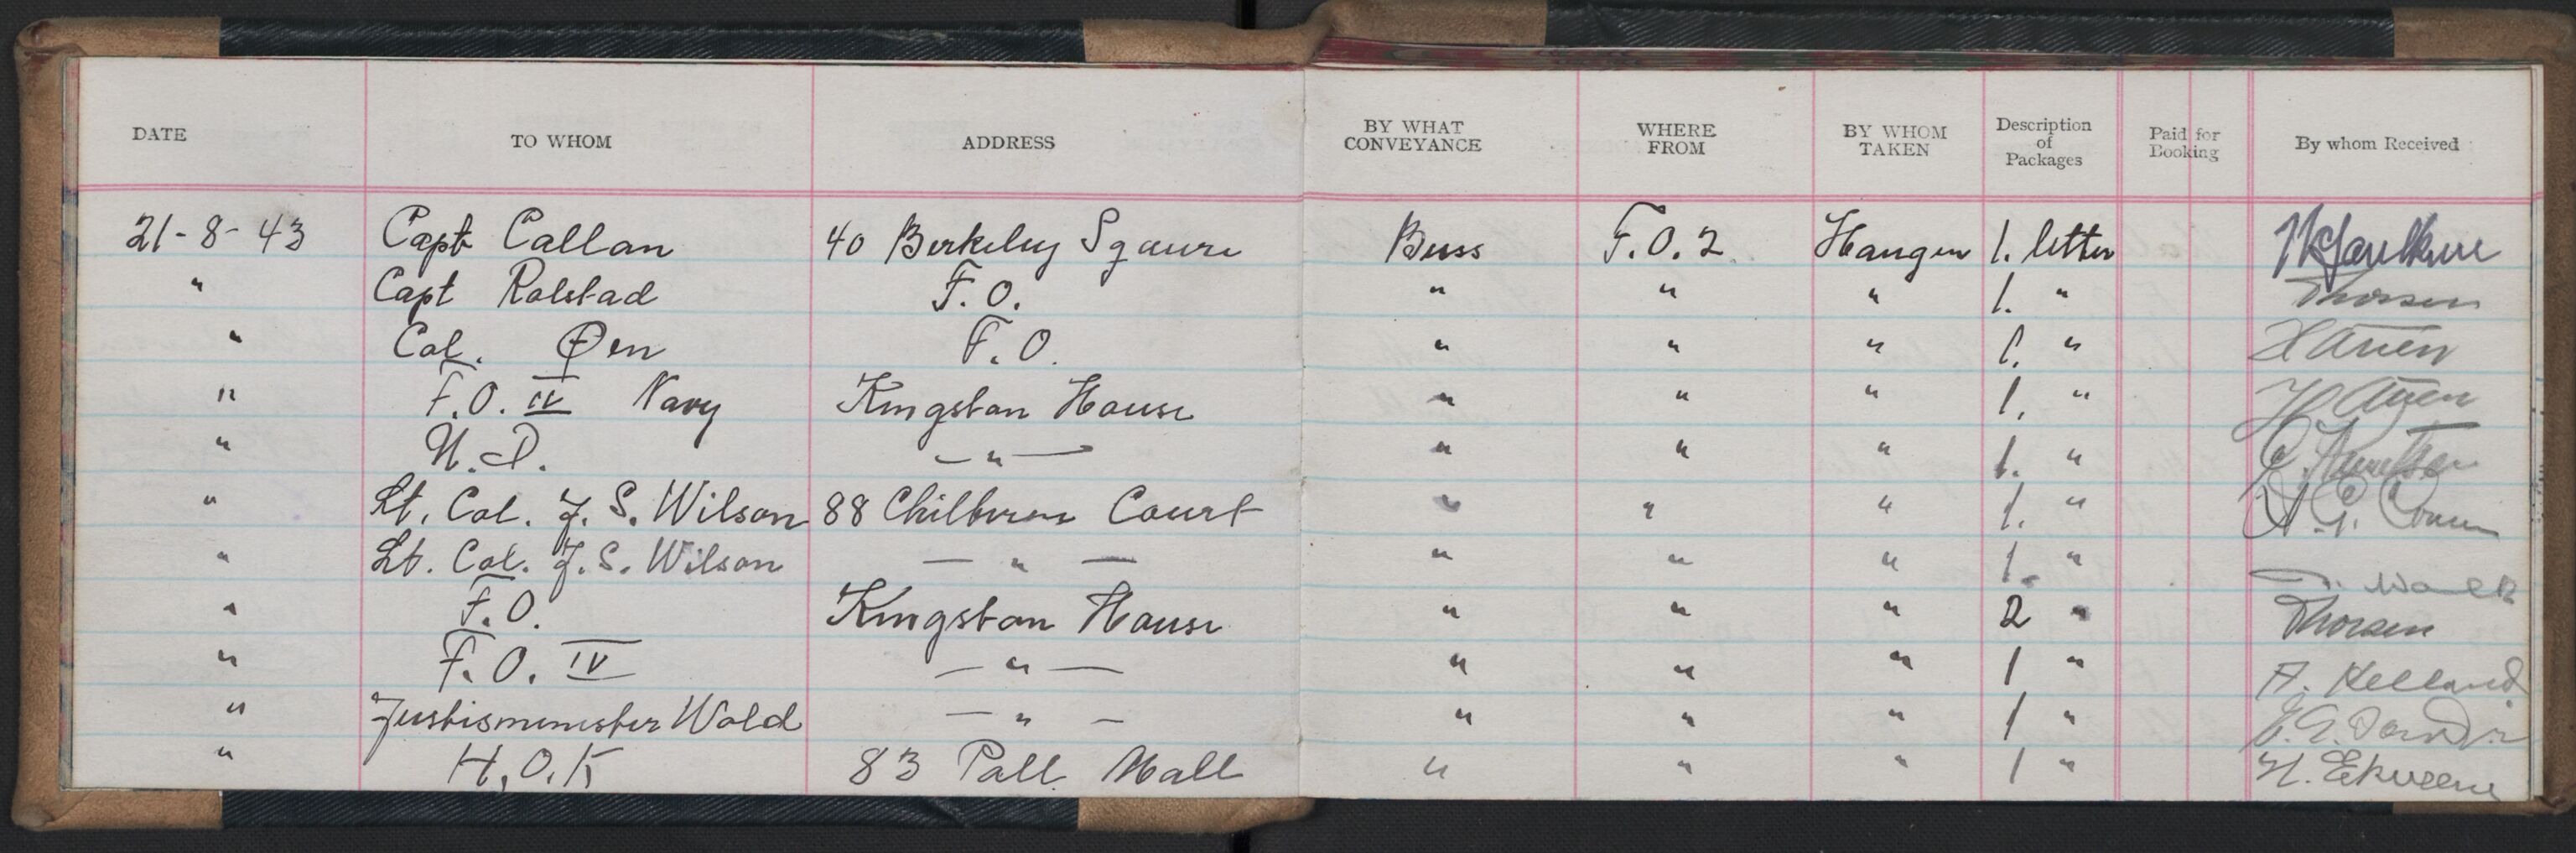 DATE TO WHOM ADDRESS BY WHAT CONVEYANCE WHERE FROM BY WHOM TAKEN Description of Packages Paid for Booking By whom Received
21-8-43 Capt Callan 40 Berkeley Sqaure Buss F.O.2. Haugen 1. letter
" Capt Rolstad F.O. " " " 1. " Thorsen
" Col. Øen F.O. " " " 1. "
" F.O. IV Navy Kingston House " " " 1. "
" U.D. — " — " " " 1. "
" Lt. Col. J. S. Wilson 88 Chilbern Court " " " 1. "
" Lt. Col. J. S. Wilson — " — " " " 1. "
" F.O. Kingston House " " " 2 " Thorsen
" F.O. IV — " — " " " 1 " A. Helland
" Justisminister Wold — " — " " " 1 "
" H.O.K 83 Pall Mall " " " 1 "